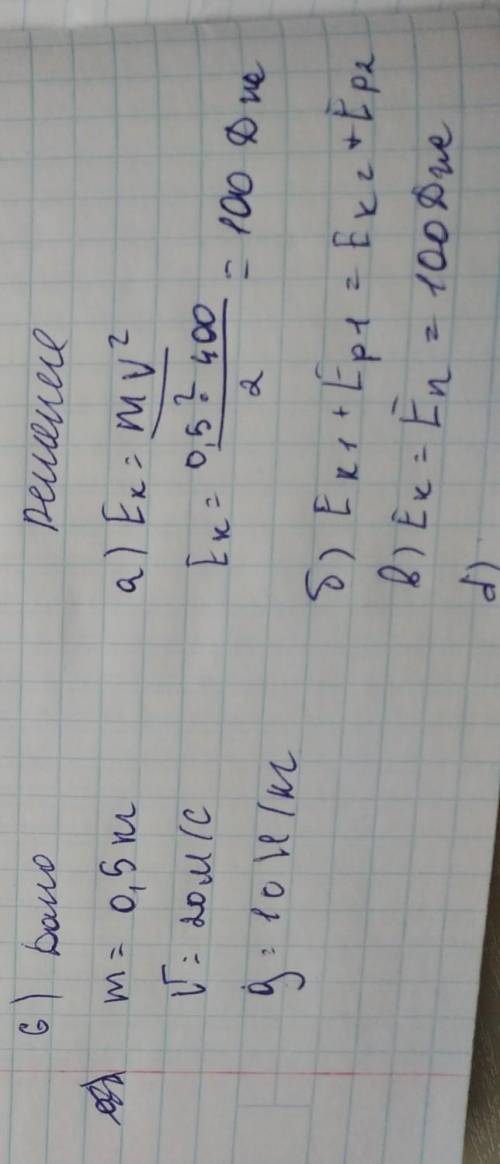 6) Дано
m = 0,5 кг
V = 20 м/с
g = 10 Н/кг
Решение
а) Eк = mV²
Eк = 0,5 · 400 / 2 = 100 Дж
б) Eк1 + Ep1 = Eк2 + Ep2
в) Eк = Eп = 100 Дж